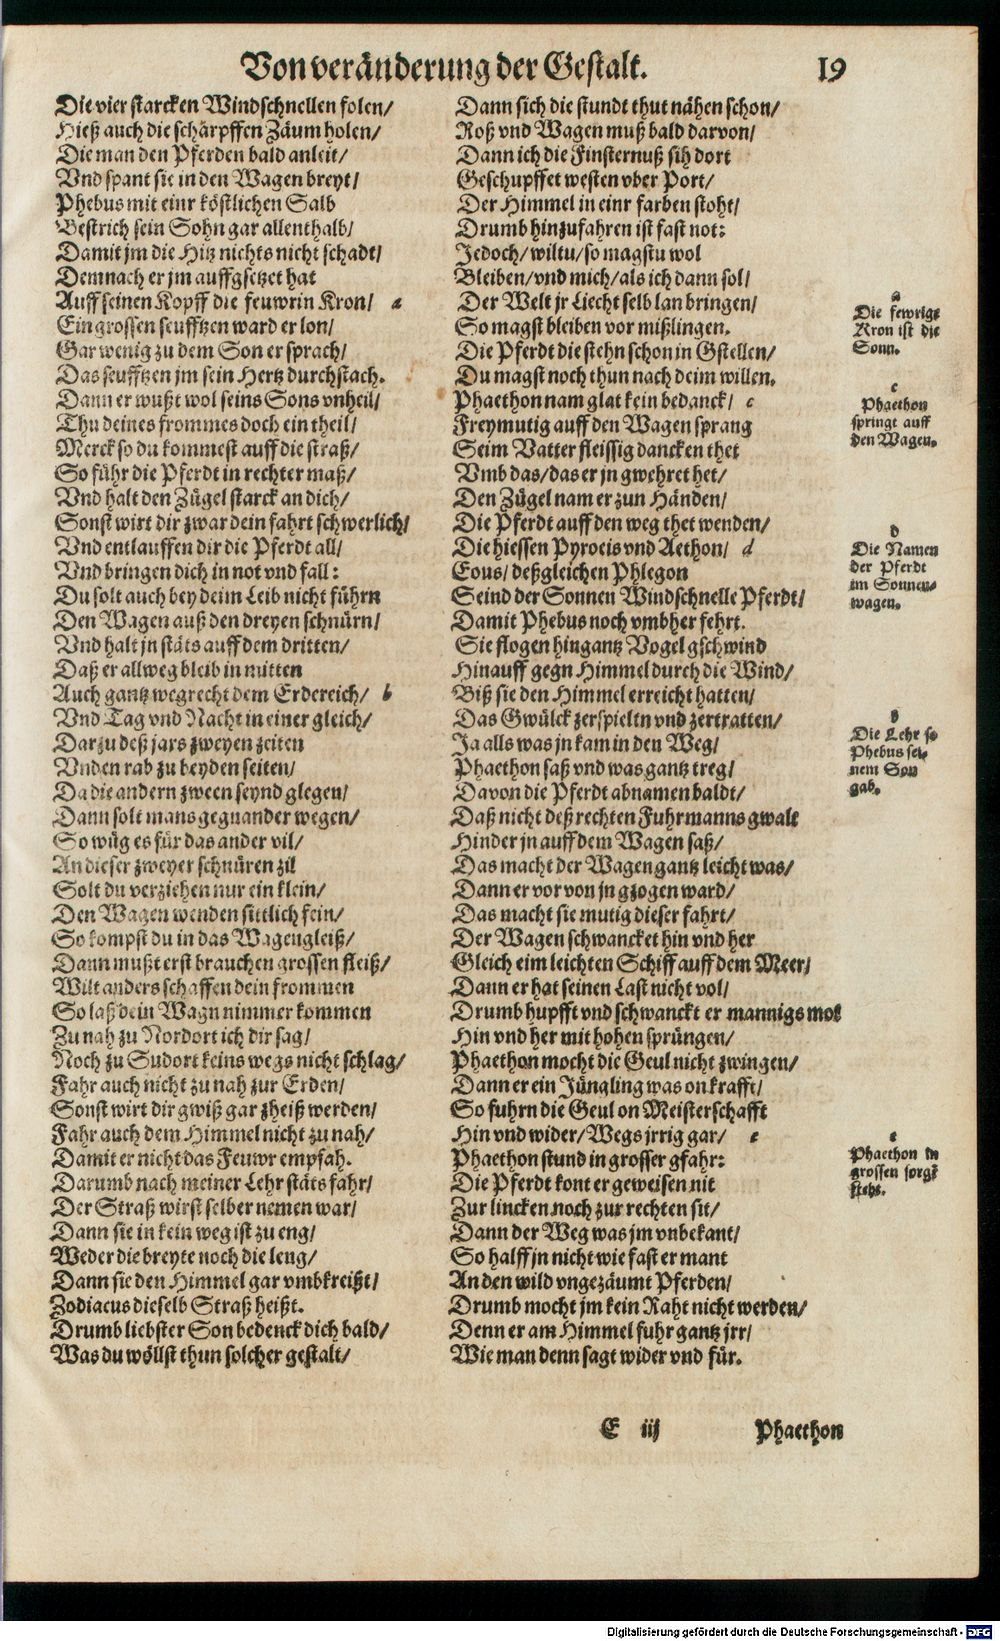 Von veränderung der Gestalt.
19
Die vier starcken Windschnellen folen/
Hieß auch die schärpffen Zäum holen/
Die man den Pferden bald anleit/
Vnd spant sie in den Wagen breyt/
Phebus mit einr köstlichen Salb
Bestrich sein Sohn gar allenthalb/
Damit jm die Hitz nichts nicht schadt/
Demnach er jm auffgsetzet hat
Auff seinen Kopff die feuwrin Kron/ a
Ein grossen seufftzen ward er lon/
Gar wenig zu dem Son er sprach/
Das seufftzen jm sein Hertz durchstach.
Dann er wußt wol seins Sons vnheil/
Thu deines frommes doch ein theil/
Merck so du kommest auff die straß/
So führ die Pferdt in rechter maß/
Vnd halt den Zügel starck an dich/
Sonst wirt dir zwar dein fahrt schwerlich/
Vnd entlauffen dir die Pferdt all/
Vnd bringen dich in not vnd fall:
Du solt auch bey deim Leib nicht führn
Den Wagen auß den dreyen schnürn/
Vnd halt jn stäts auff dem dritten/
Daß er allweg bleib in mitten
Auch gantz wegrecht dem Erdereich/ b
Vnd Tag vnd Nacht in einer gleich/
Darzu deß jars zweyen zeiten
Vnden rab zu beyden seiten/
Da die andern zween seynd glegen/
Dann solt mans gegnander wegen/
So wüg es für das ander vil/
An dieser zweyer schnüren zil
Solt du verziehen nur ein klein/
Den Wagen wenden sittlich fein/
So kompst du in das Wagengleiß/
Dann mußt erst brauchen grossen fleiß/
Wilt anders schaffen dein frommen
So laß dein Wagn nimmer kommen
Zu nah zu Nordort ich dir sag/
Noch zu Sudort keins wegs nicht schlag/
Fahr auch nicht zu nah zur Erden/
Sonst wirt dir gwiß gar zheiß werden/
Fahr auch dem Himmel nicht zu nah/
Damit er nicht das Feuwr empfah.
Darumb nach meiner Lehr stäts fahr/
Der Straß wirst selber nemen war/
Dann sie in kein weg ist zu eng/
Weder die breyte noch die leng/
Dann sie den Himmel gar vmbkreißt/
Zodiacus dieselb Straß heißt.
Drumb liebster Son bedenck dich bald/
Was du wöllst thun solcher gestalt/
Dann sich die stundt thut nähen schon/
Roß vnd Wagen muß bald darvon/
Dann ich die Finsternuß sih dort
Geschupffet westen vber Port/
Der Himmel in einr farben stoht/
Drumb hinzufahren ist fast not:
Jedoch/ wiltu/ so magstu wol
Bleiben/ vnd mich/ als ich dann sol/
Der Welt jr Liecht selb lan bringen/
So magst bleiben vor mißlingen.
Die Pferdt die stehn schon in Gstellen/
Du magst noch thun nach deim willen.
Phaethon nam glat kein bedanck/ c
Freymutig auff den Wagen sprang
Seim Vatter fleissig dancken thet
Vmb das/ das er jn gwehret het/
Den Zügel nam er zun Händen/
Die Pferdt auff den weg thet wenden/
Die hiessen Pyroeis vnd Aethon/ d
Eous/ deßgleichen Phlegon
Seind der Sonnen Windschnelle Pferdt/
Damit Phebus noch vmbher fehrt.
Sie flogen hin gantz Vogel gschwind
Hinauff gegn Himmel durch die Wind/
Biß sie den Himmel erreicht hatten/
Das Gwülck zerspieltn vnd zertratten/
Ja alls was jn kam in den Weg/
Phaethon saß vnd was gantz treg/
Davon die Pferdt abnamen baldt/
Daß nicht deß rechten Fuhrmanns gwalt
Hinder jn auff dem Wagen saß/
Das macht der Wagen gantz leicht was/
Dann er vor von jn gzogen ward/
Das macht sie mutig dieser fahrt/
Der Wagen schwancket hin vnd her
Gleich eim leichten Schiff auff dem Meer/
Dann er hat seinen Last nicht vol/
Drumb hupfft vnd schwanckt er mannigs mol
Hin vnd her mit hohen sprüngen/
Phaethon mocht die Geul nicht zwingen/
Dann er ein Jüngling was on krafft/
So fuhrn die Geul on Meisterschafft
Hin vnd wider/ Wegs jrrig gar/ e
Phaethon stund in grosser gfahr:
Die Pferdt kont er geweisen nit
Zur lincken noch zur rechten sit/
Dann der Weg was jm vnbekant/
So halff jn nicht wie fast er mant
An den wild vngezäumt Pferden/
Drumb mocht jm kein Raht nicht werden/
Denn er am Himmel fuhr gantz jrr/
Wie man denn sagt wider vnd für.
a
Die fewrige
Kron ist die
Sonn.
c
Phaethon
springt auff
den Wagen.
d
Die Namen
der Pferdt
im Sonnen-
wagen.
b
Die Lehr so
Phebus sei-
nem Son
gab.
e
Phaethon in
grossen sorgē
steht.
E iij
Phaethon
Digitalisierung gefördert durch die Deutsche Forschungsgemeinschaft - DFG